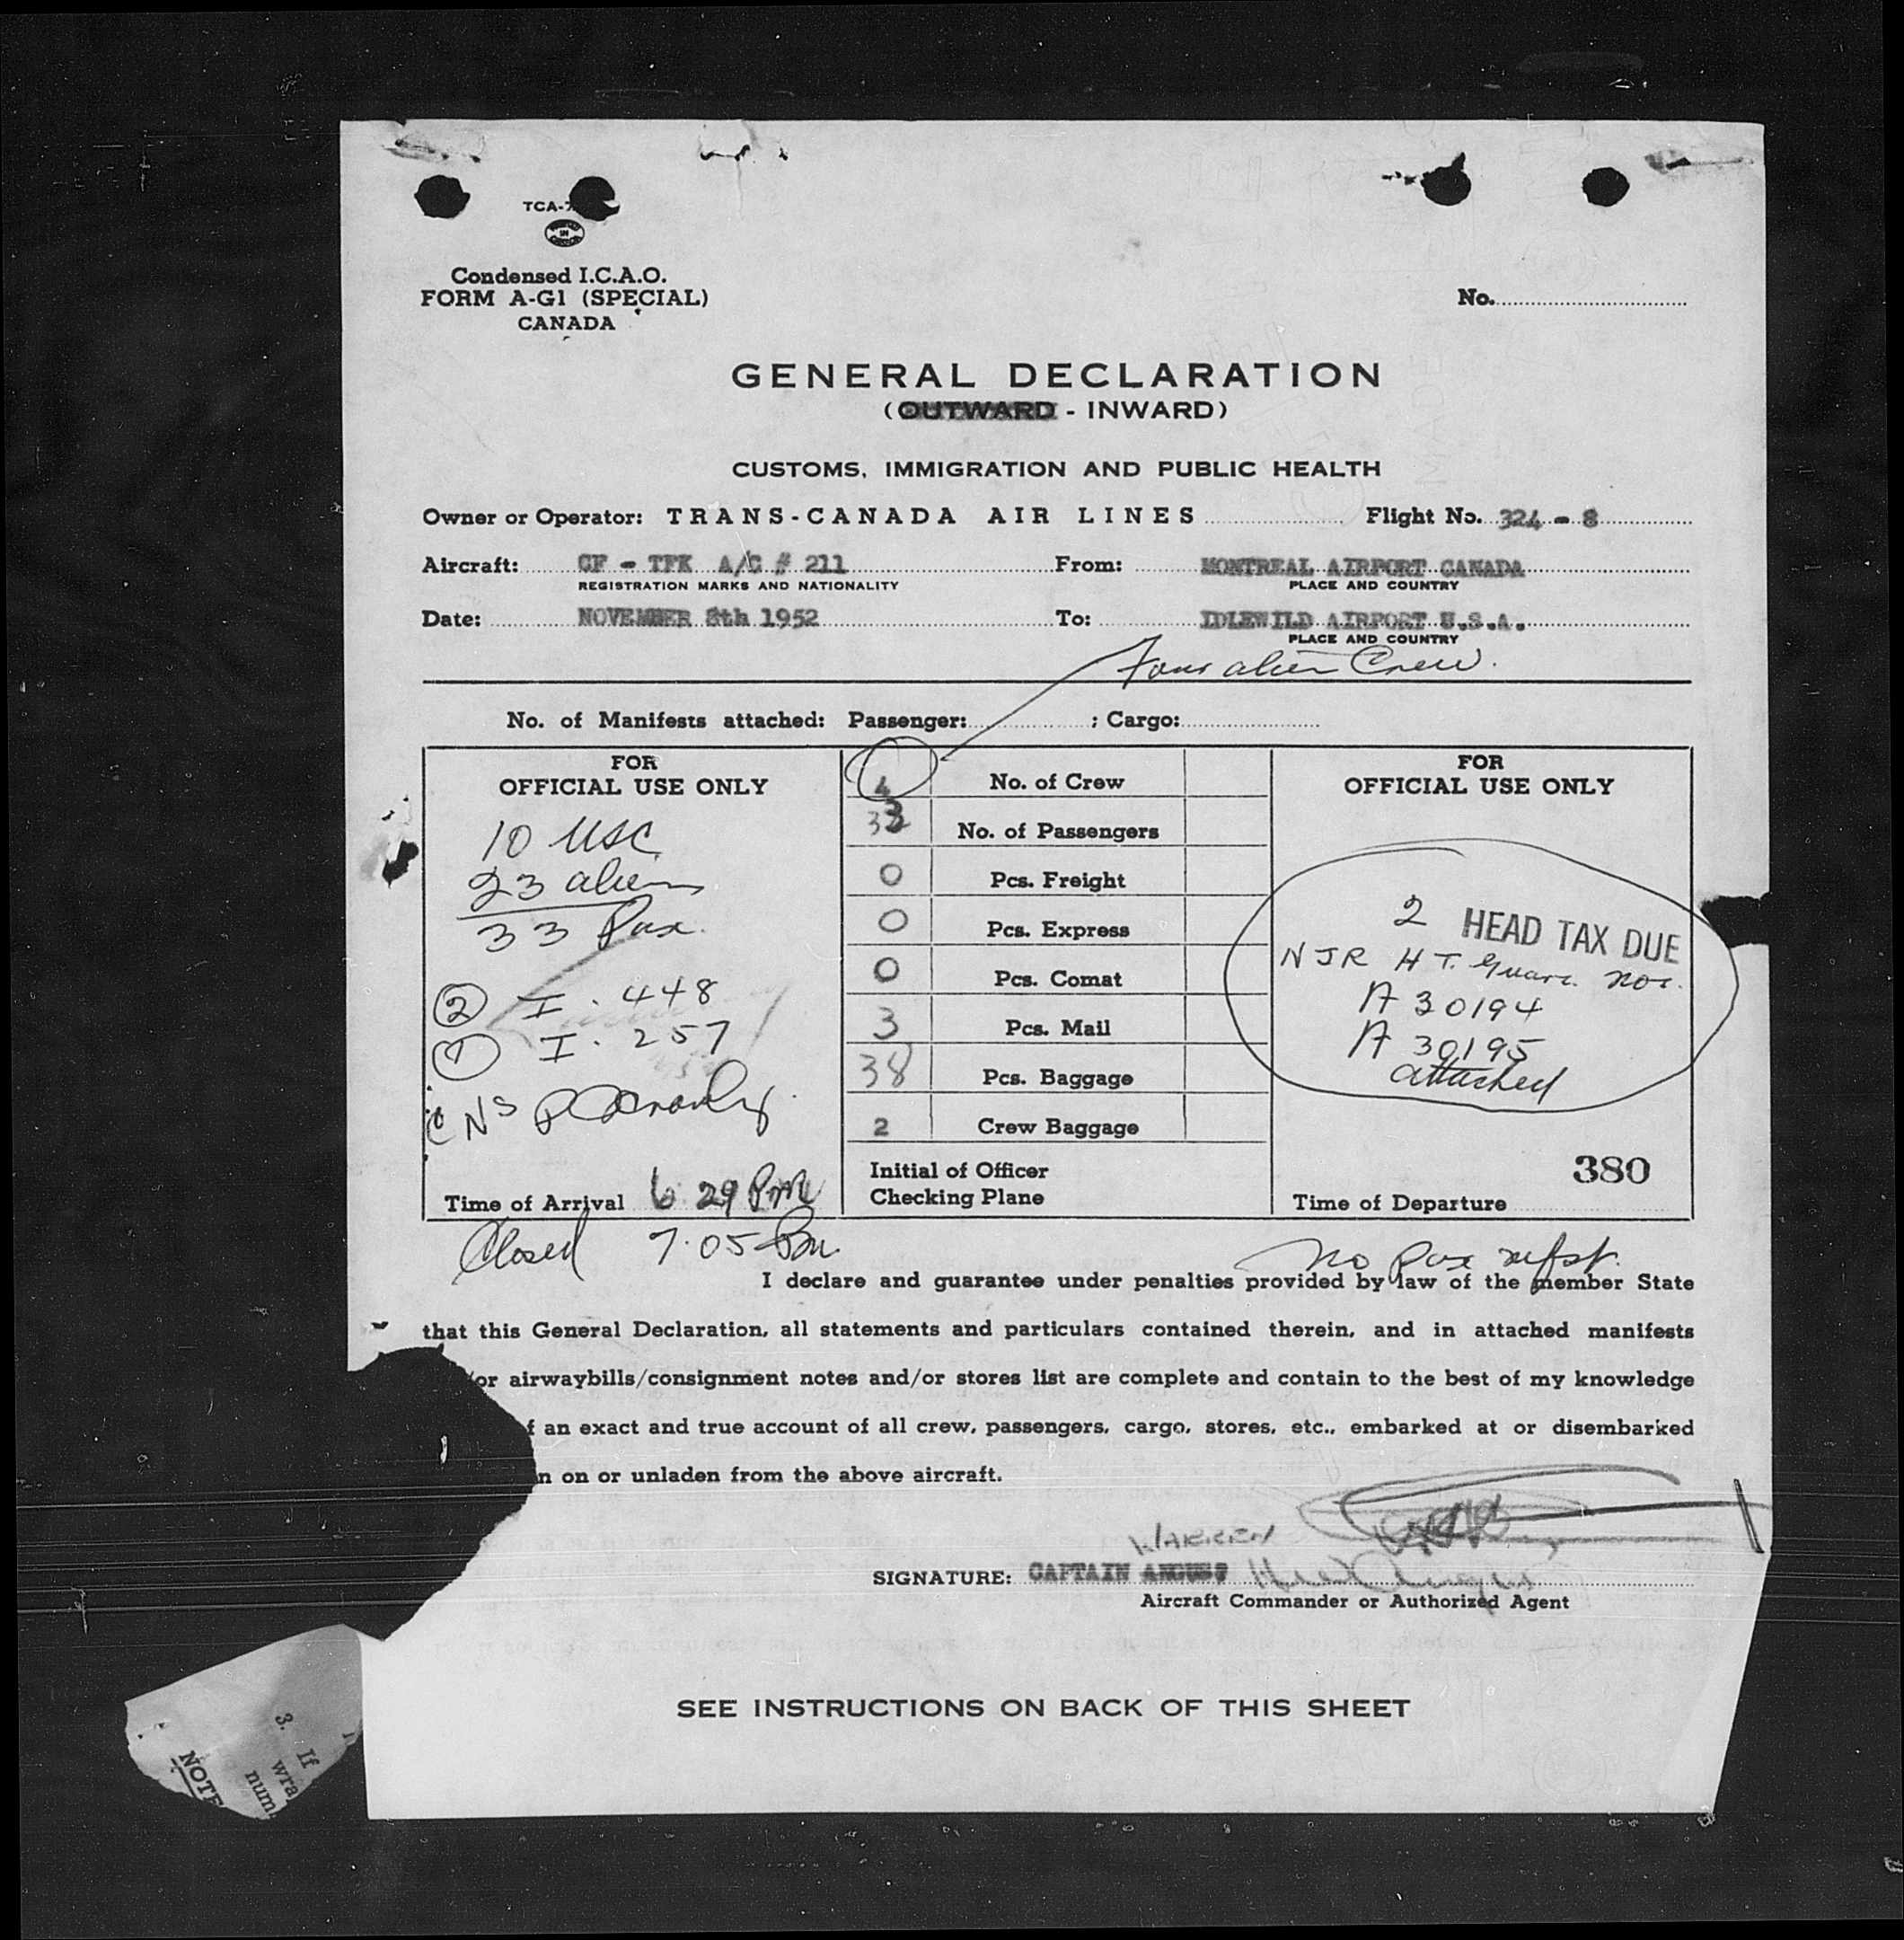 TCA-7
MADE IN CANADA
Condensed I.C.A.O.
FORM A-G1 (SPECIAL)
CANADA
No.
GENERAL DECLARATION
(OUTWARD - INWARD)
CUSTOMS, IMMIGRATION AND PUBLIC HEALTH
Owner or Operator: TRANS-CANADA AIR LINES Flight No. 324 - 8
Aircraft: CF - TFK A/C # 211 From: MONTREAL AIRPORT CANADA
REGISTRATION MARKS AND NATIONALITY PLACE AND COUNTRY
Date: NOVEMBER 8th 1952 To: IDLEWILD AIRPORT U.S.A.
PLACE AND COUNTRY
Four alien Crew.
No. of Manifests attached: Passenger: ; Cargo:
FOR
OFFICIAL USE ONLY
10 USC
23 aliens
33 Pax.
2 I. 448
1 I. 257
Time of Arrival 6 29 PM
4 No. of Crew
33 No. of Passengers
0 Pcs. Freight
0 Pcs. Express
0 Pcs. Comat
3 Pcs. Mail
38 Pcs. Baggage
2 Crew Baggage
Initial of Officer
Checking Plane
FOR
OFFICIAL USE ONLY
2 HEAD TAX DUE
NJR H T. Guar. nos.
A 30194
A 30195
attached
380
Time of Departure
Closed 7.05 Pm.
no Pax
I declare and guarantee under penalties provided by law of the member State
that this General Declaration, all statements and particulars contained therein, and in attached manifests
/or airwaybills/consignment notes and/or stores list are complete and contain to the best of my knowledge
f an exact and true account of all crew, passengers, cargo, stores, etc., embarked at or disembarked
n on or unladen from the above aircraft.
WARREN
SIGNATURE: CAPTAIN ANGUS
Aircraft Commander or Authorized Agent
SEE INSTRUCTIONS ON BACK OF THIS SHEET
3. If
wra
num
NOTE